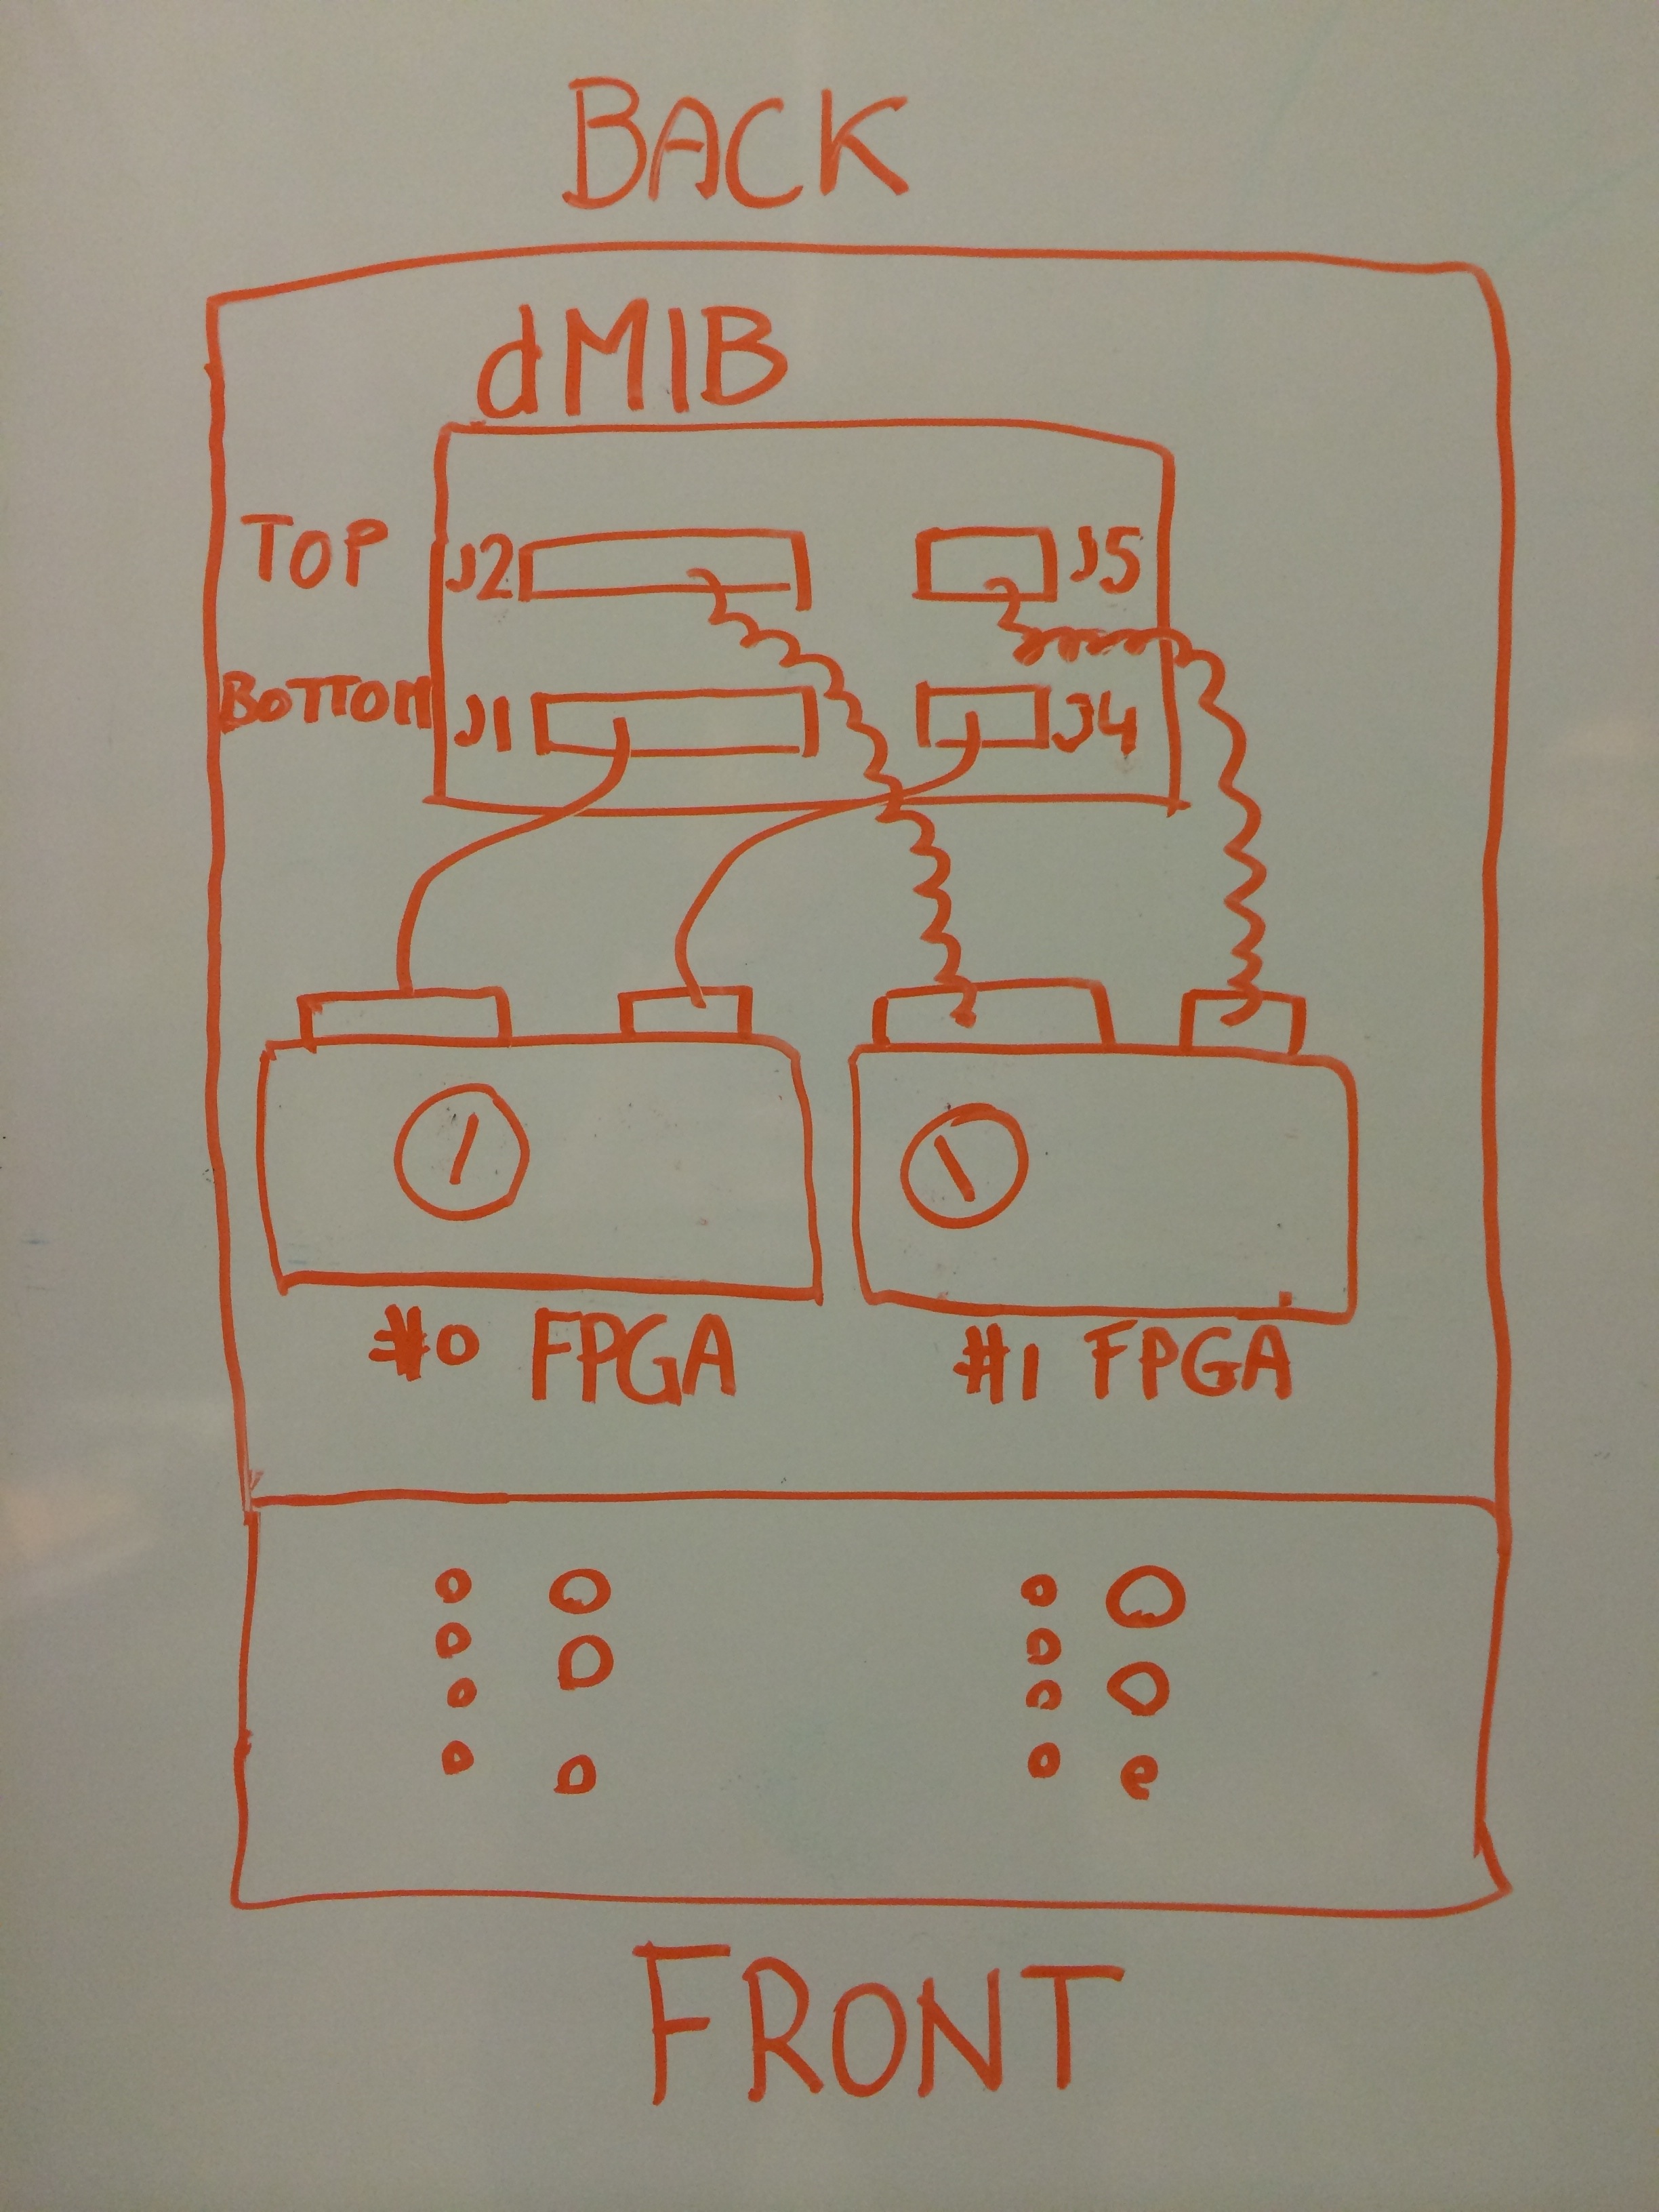 BACK
dMIB
TOP J2 J5
BOTTOM J1 J4
#0 FPGA #1 FPGA
FRONT